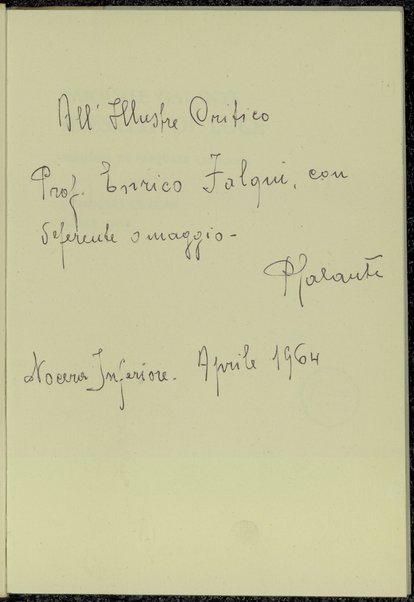 All' Illustre Critico
Prof. Enrico Falqui, con
deferente omaggio -
Nocera Inferiore. Aprile 1964